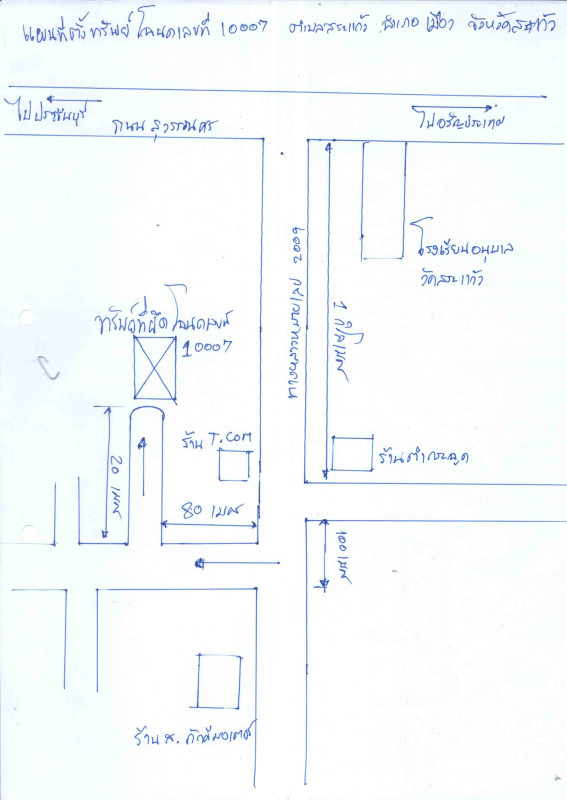 แผนที่ตั้งทรัพย์ โฉนดเลขที่ 10007 ตำบลสระแก้ว อำเภอ เมือง จังหวัดสระแก้ว
ไปปราจีนบุรี
ถนน สุวรรณศร
ไปอรัญประเทศ
โรงเรียนอนุบาล
วัดสระแก้ว
ทางหลวงหมายเลข 2009
1 กิโลเมตร
ทรัพย์ที่ยึด โฉนดเลขที่
10007
ร้าน T.COM
ร้าน
20 เมตร
80 เมตร
100 เมตร
ร้าน ส.